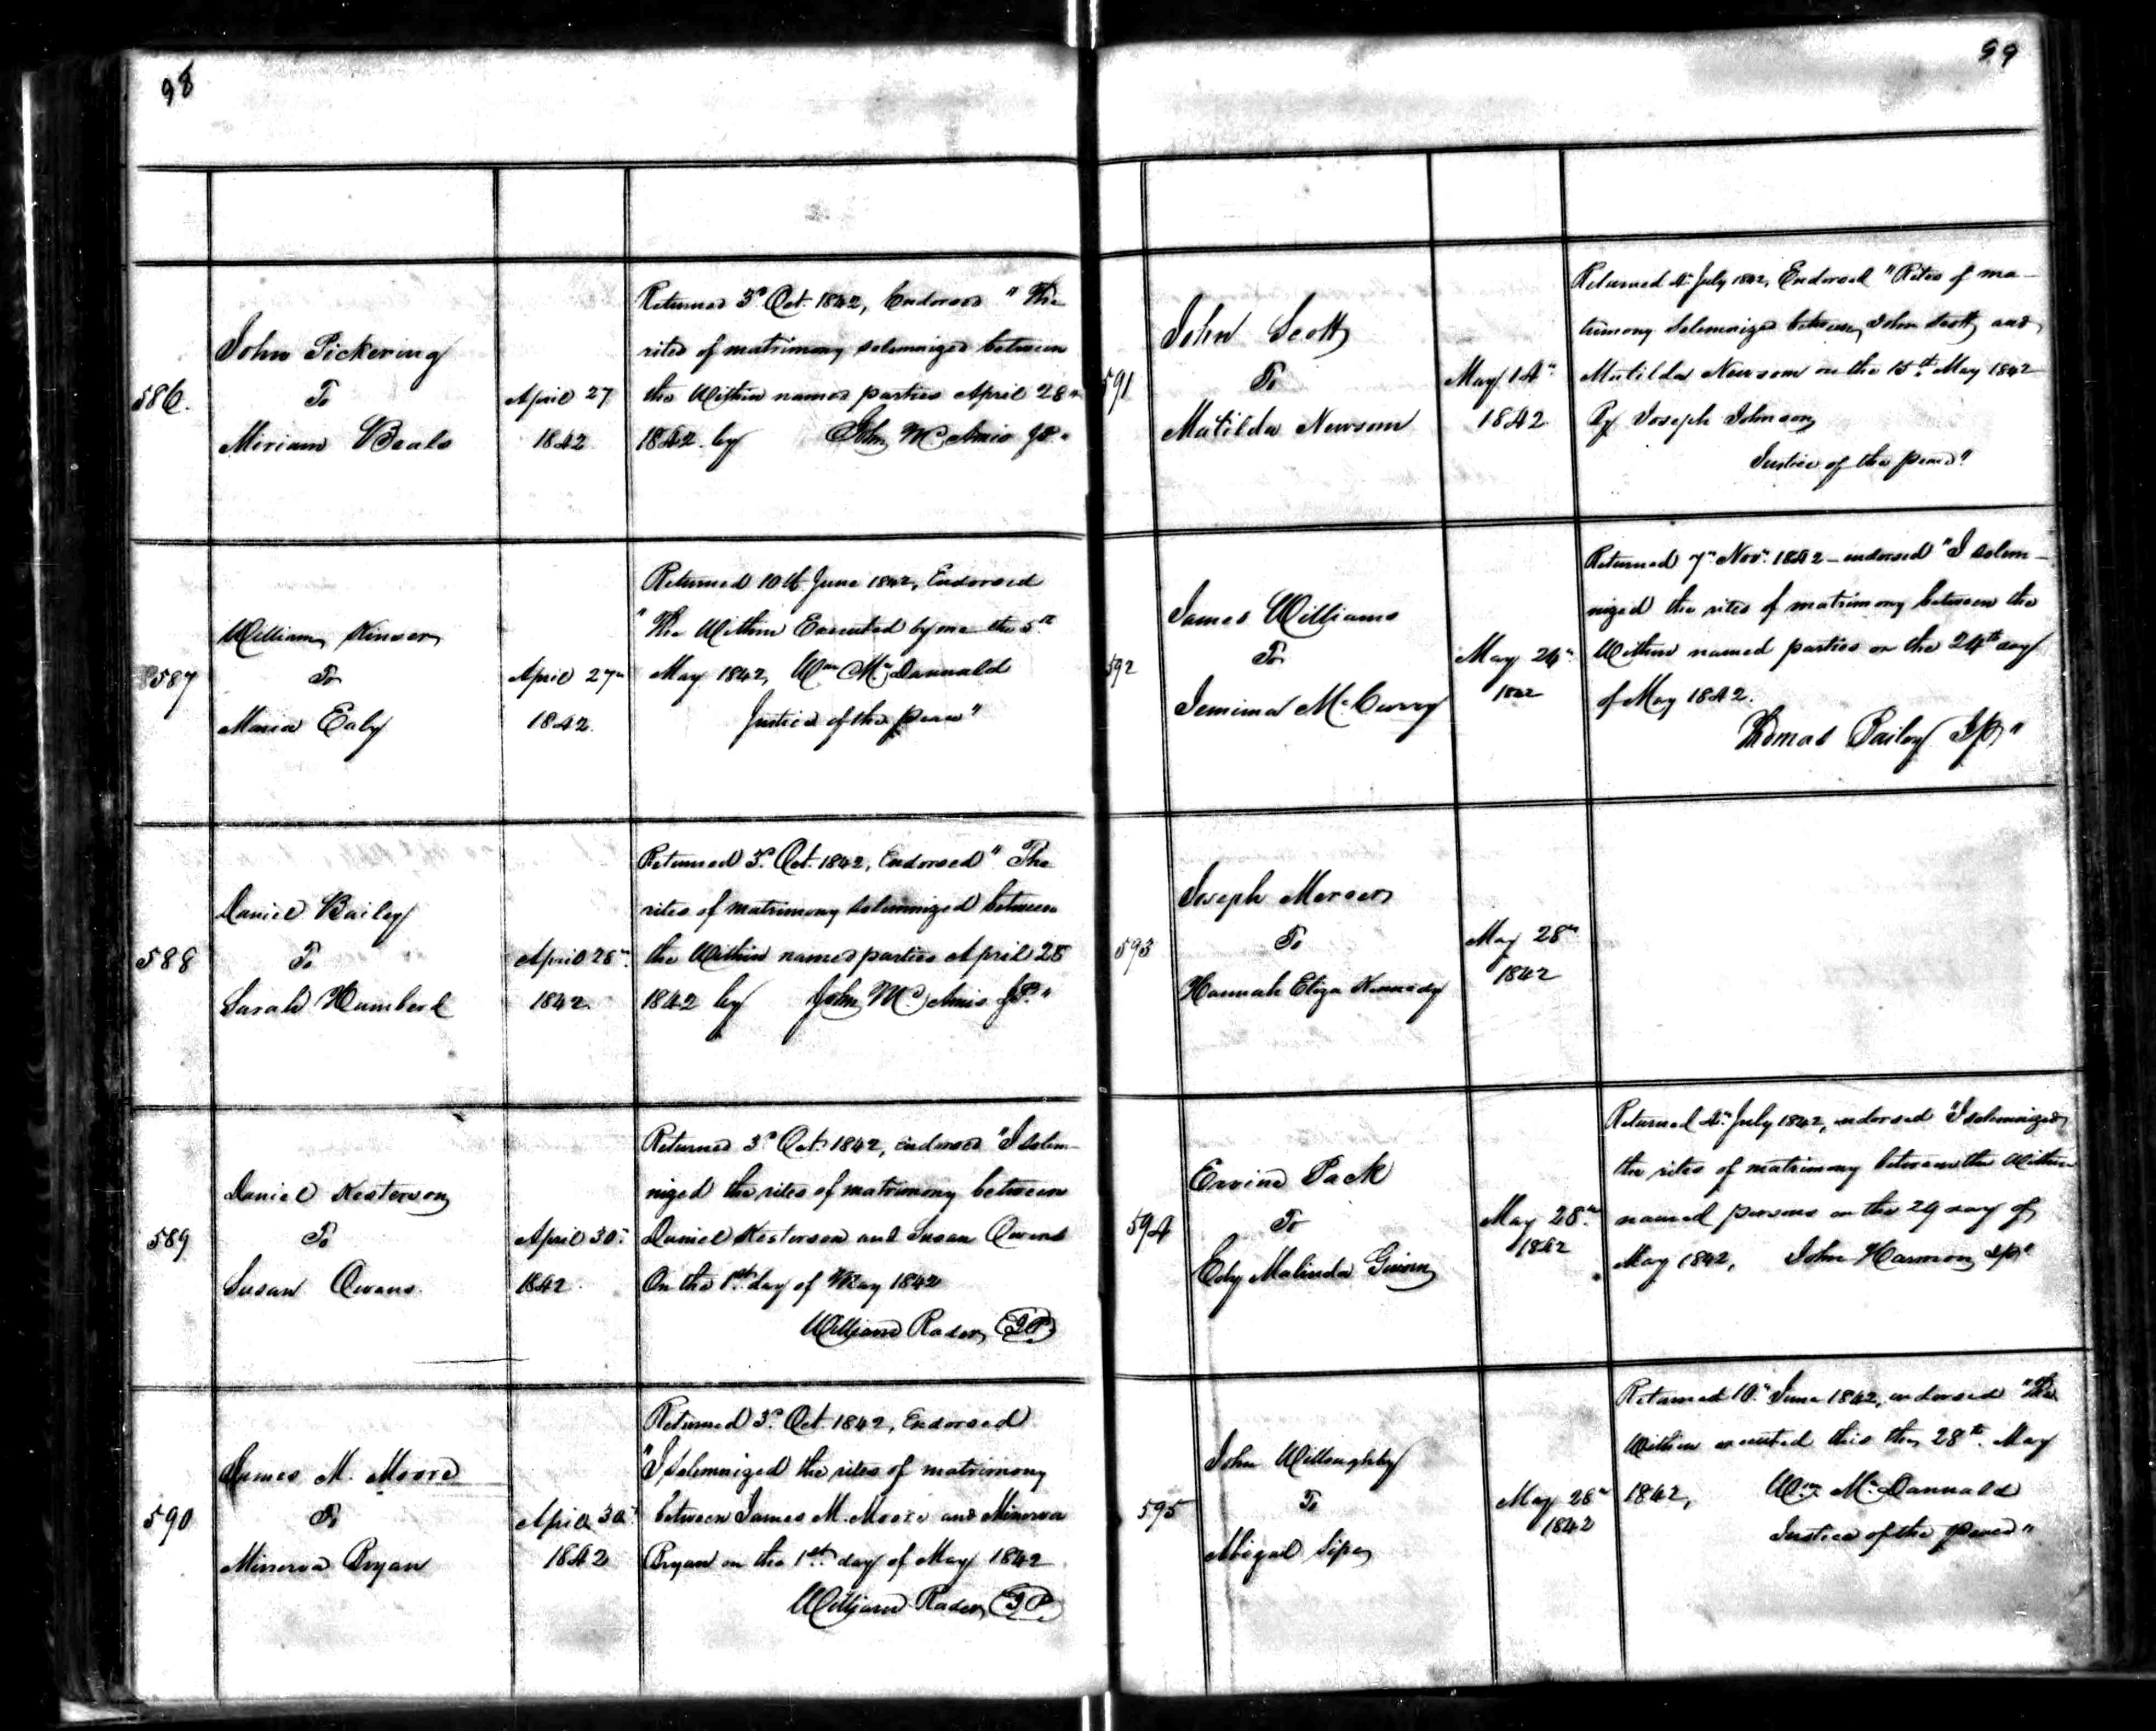 98
586.
John Pickering
To
Miriam Beals
April 27
1842
Returned 3d Oct. 1842, Endorsed "The
rites of matrimony solemnized between
the Within named parties April 28"
1842. by John McAmis JP."
587
William Kinser
To
Maria Ealy
April 27th
1842.
Returned 10th June 1842, Endorsed
"The Within Executed by me the 5th
May 1842, Wm McDannald
Justice of the peace"
588
Daniel Bailey
To
Sarah Humberd
April 28th
1842.
Returned 3d Oct. 1842, Endorsed "The
rites of matrimony solemnized between
the Within named parties April 28
1842 by John McAmis JP."
589
Daniel Kesterson
To
Susan Owens
April 30th
1842.
Returned 3d Oct. 1842, endorsed "I solem-
nized the rites of matrimony between
Daniel Kesterson and Susan Owens
On the 1st day of May 1842
William Rader JP
590
James M. Moore
To
Minerva Bryan
April 30th
1842
Returned 3d Oct. 1842, Endorsed
"I solemnized the rites of matrimony
between James M. Moore and Minerva
Bryan on the 1st day of May 1842
William Rader JP
99
591
John Scott
To
Matilda Newsom
May 14th
1842
Returned 4th July 1842, Endorsed "Rites of ma-
trimony Solemnized between John Scott and
Matilda Newsom on the 15th May 1842
By Joseph Johnson
Justice of the peace"
592
James Williams
To
Jemima McCurry
May 24th
1842
Returned 7th Novr. 1842 - endorsed "I solem-
nized the rites of matrimony between the
Within named parties on the 24th day
of May 1842.
Thomas Bailey JP"
593
Joseph Mercer
To
Hannah Eliza Kennedy
May 28th
1842
594
Ervine Pack
To
Edy Malinda Guinn
May 28th
1842
Returned 4th July 1842, endorsed "I solemnized
the rites of matrimony between the Within
named persons on the 29 day of
May 1842, John Harmon JP"
595
John Willoughby
To
Abigail Sipe
May 28th
1842
Returned 10th June 1842, endorsed "The
Within executed this the 28th May
1842, Wm McDannald
Justice of the peace"